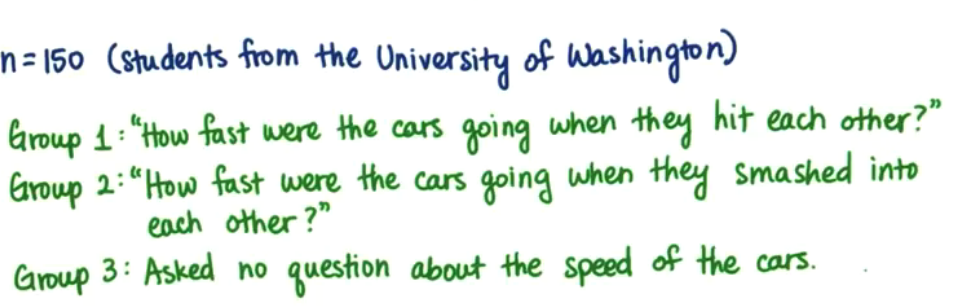 n=150 (students from the University of Washington)
Group 1: "How fast were the cars going when they hit each other?"
Group 2: "How fast were the cars going when they smashed into
each other?"
Group 3: Asked no question about the speed of the cars.